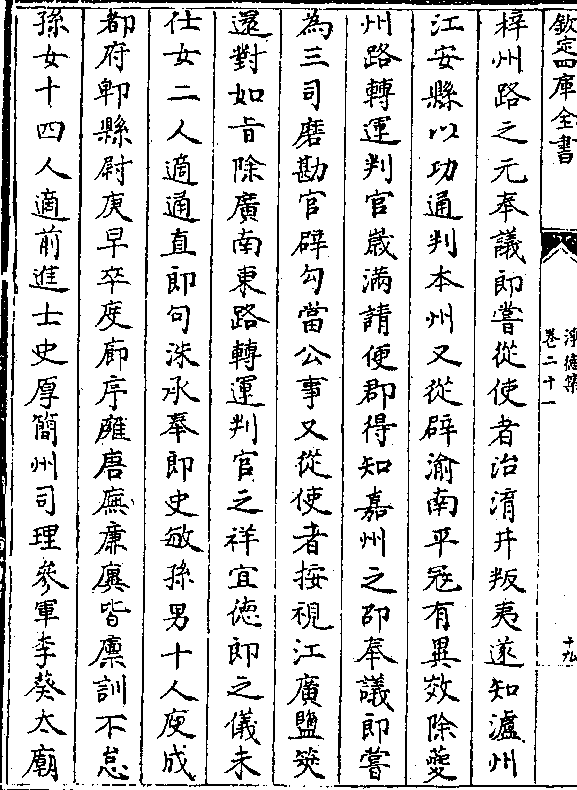 欽定四庫全書
淨德集
卷二十一
十九
梓州路之元奉議郎嘗從使者治淯井叛夷遂知瀘州
江安縣以功通判本州又從辟渝南平寇有異效除夔
州路轉運判官歲滿請便郡得知嘉州之邵奉議郎嘗
為三司磨勘官辟勾當公事又從使者按視江廣鹽筴
還對如旨除廣南東路轉運判官之祥宜德郎之儀未
仕女二人適通直郎句洙承奉郎史敏孫男十人庾成
都府郫縣尉庚早卒度廊序雝唐廡廉賡皆稟訓不怠
孫女十四人適前進士史厚簡州司理參軍李葵太廟